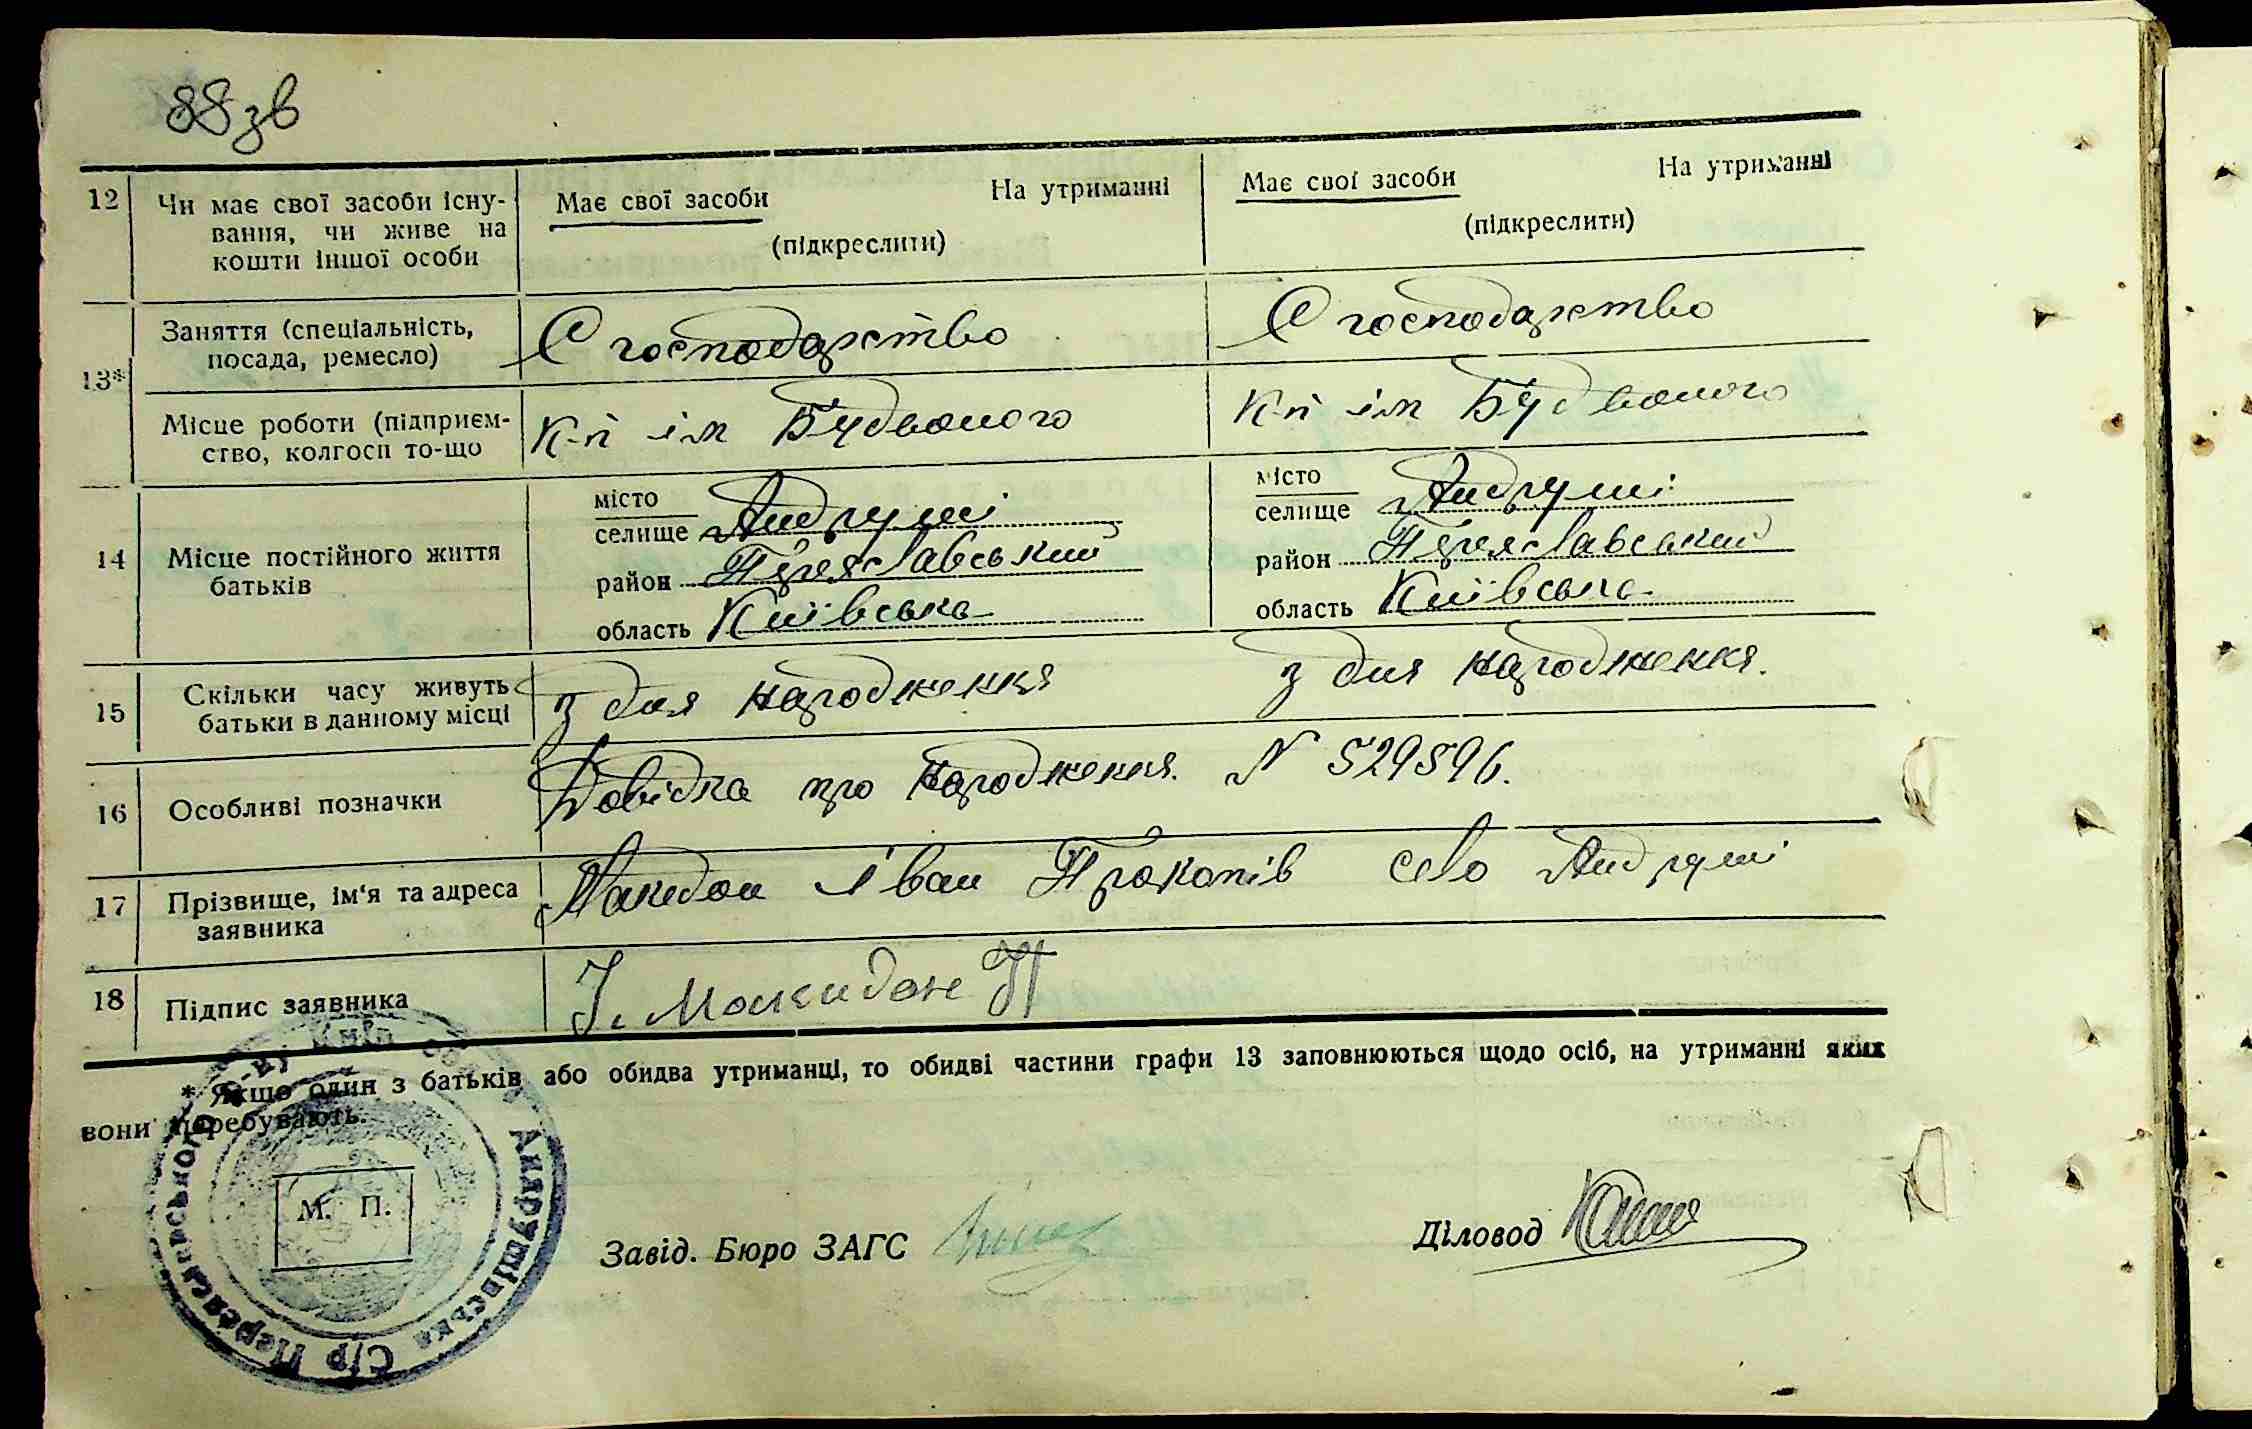 88зв
12 Чи має свої засоби існу-
вання, чи живе на
кошти іншої особи
Має свої засоби На утриманні
(підкреслити)
Має свої засоби На утриманні
(підкреслити)
13*
Заняття (спеціальність,
посада, ремесло)
С господарство
С господарство
Місце роботи (підприєм-
ство, колгосп то-що
К-п ім Будьоного
К-п ім Будьоного
14 Місце постійного життя
батьків
місто
селище Андруші
район Переяславський
область Київська
місто
селище Андруші
район Переяславський
область Київська
15 Скільки часу живуть
батьки в данному місці
з дня народження
з дня народження.
16 Особливі позначки
Довідка про народження. N 529596.
17 Прізвище, ім'я та адреса
заявника
Македон Іван Прокопів село Андруші
18 Підпис заявника
І. Макидон П
* Якщо один з батьків або обидва утриманці, то обидві частини графи 13 заповнюються щодо осіб, на утриманні яких
вони перебувають.
М. П.
Андрушівська С/Р Переяславського р-ну Київ об
Завід. Бюро ЗАГС
Діловод